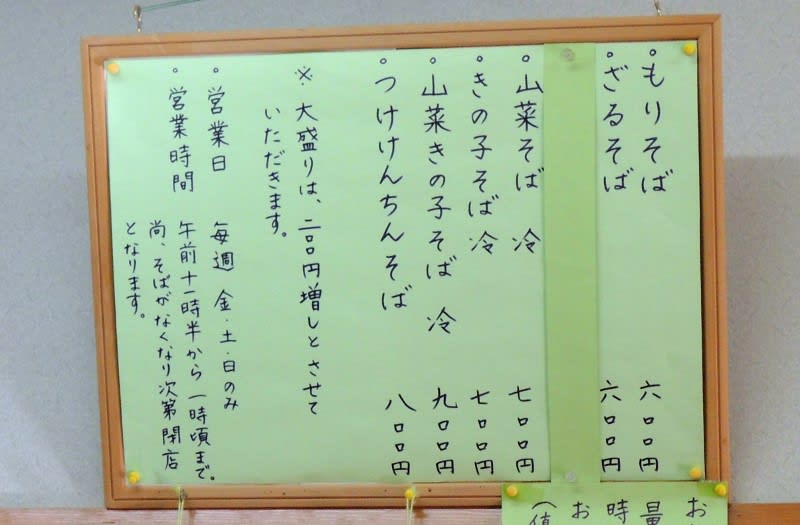 。もりそば 六〇〇円
。ざるそば 六〇〇円
。山菜そば 冷 七〇〇円
。きの子そば 冷 七〇〇円
。山菜きの子そば 冷 九〇〇円
。つけけんちんそば 八〇〇円
※ 大盛りは、二〇〇円増しとさせて
いただきます。
。営業日 毎週 金・土・日のみ
。営業時間 午前十一時半から 一時頃まで。
尚、そばがなくなり次第閉店
となります。
お
量
時
お